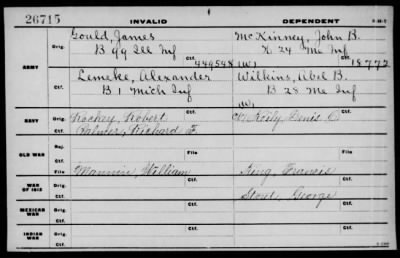 26715 INVALID DEPENDENT
ARMY
Orig. Gould, James McKinney, John B.
B 99 Ill Inf K 24 Me Inf
Ctf. 449548 (W) Ctf. 18772
Lemeke, Alexander Wilkins, Abel B.
B 1 Mich Inf B 28 Me Inf
Ctf. (W)
NAVY Orig. Robert Denis
Ctf. Palmer, Richard F.
OLD WAR Rej. File
Ctf.
WAR OF 1812 File Mannin, William King, Francis
Orig. Stout, George
Ctf.
MEXICAN WAR Orig.
Ctf.
INDIAN WAR Orig.
Ctf.